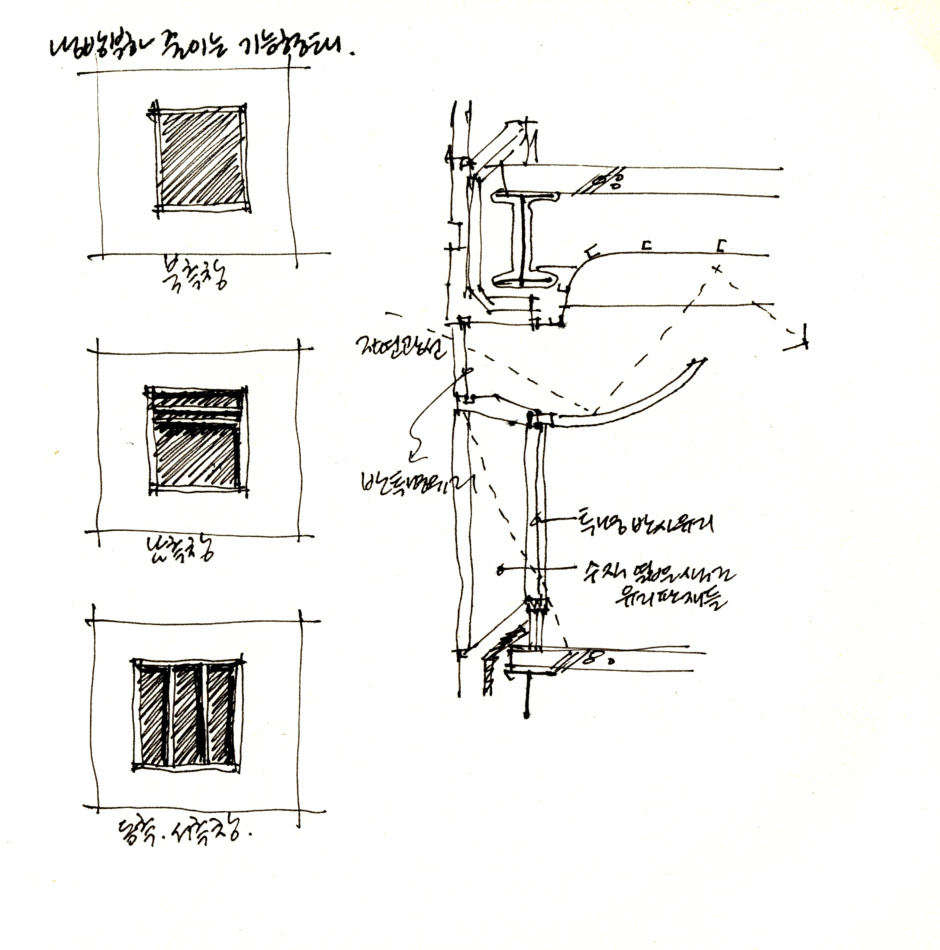 냉방부하 줄이는 기능형태.
북측창
남측창
동측.서측창.
자연광선
반투명유리
투명 반사유리
수직 열은
유리판재들